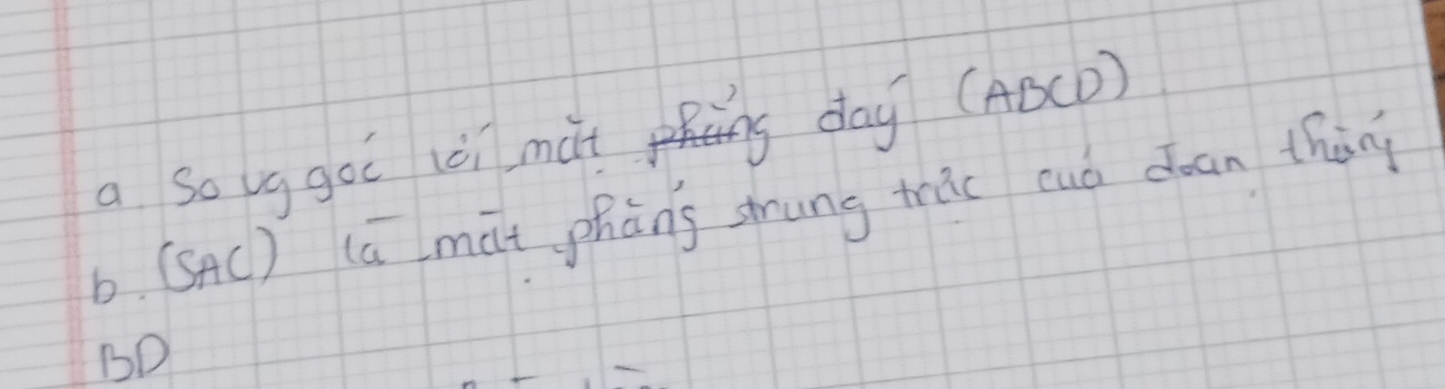 a. SO vg góc với mặt phẳng đáy (ABCD)
b. (SAC) là mặt phẳng trung trực của đoạn thẳng
BD